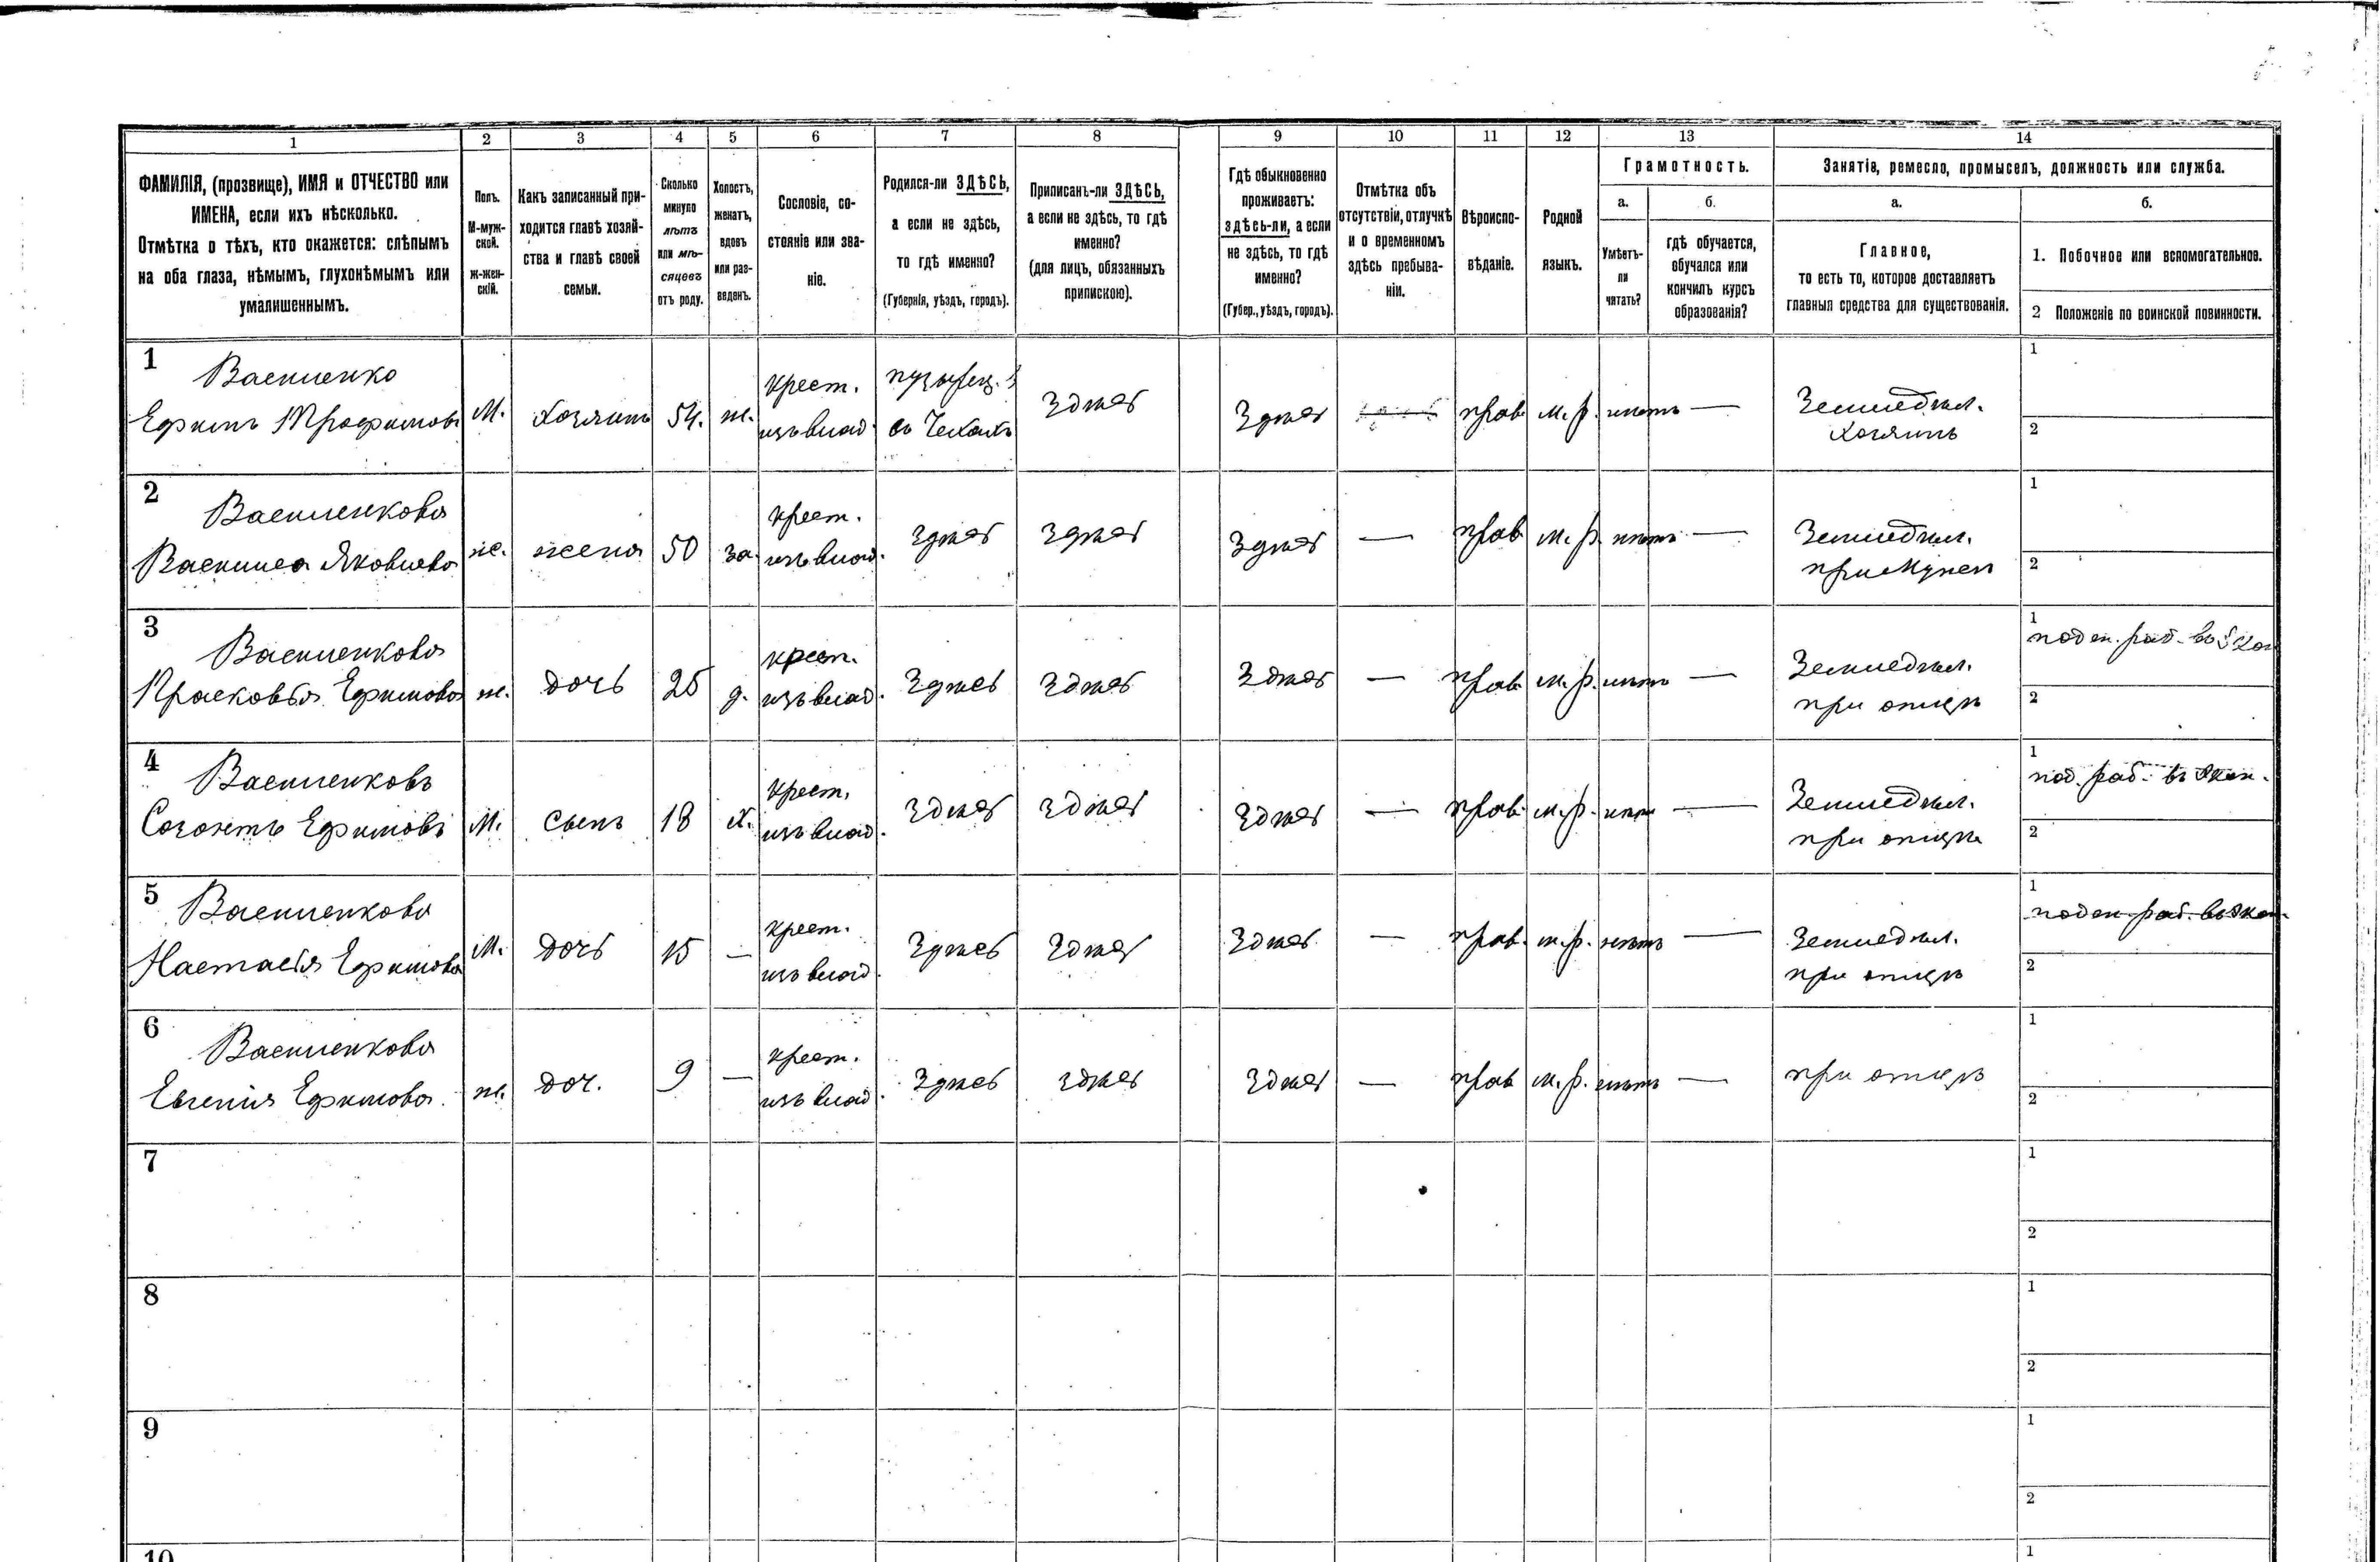 1 2 3 4 5 6 7 8 9 10 11 12 13 14
ФАМИЛІЯ, (прозвище), ИМЯ и ОТЧЕСТВО или
ИМЕНА, если ихъ нѣсколько.
Отмѣтка о тѣхъ, кто окажется: слѣпымъ
на оба глаза, нѣмымъ, глухонѣмымъ или
умалишеннымъ.
Полъ.
М-муж-
ской.
ж-жен-
скій.
Какъ записанный при-
ходится главѣ хозяй-
ства и главѣ своей
семьи.
Сколько
минуло
лѣтъ
или мѣ-
сяцевъ
отъ роду.
Холостъ,
женатъ,
вдовъ
или раз-
веденъ.
Сословіе, со-
стояніе или зва-
ніе.
Родился-ли ЗДѢСЬ,
а если не здѣсь,
то гдѣ именно?
(Губернія, уѣздъ, городъ).
Приписанъ-ли ЗДѢСЬ,
а если не здѣсь, то гдѣ
именно?
(для лицъ, обязанныхъ
припискою).
Гдѣ обыкновенно
проживаетъ:
здѣсь-ли, а если
не здѣсь, то гдѣ
именно?
(Губер., уѣздъ, городъ).
Отмѣтка объ
отсутствіи, отлучкѣ
и о временномъ
здѣсь пребыва-
ніи.
Вѣроиспо-
вѣданіе.
Родной
языкъ.
Грамотность.
а.
Умѣетъ-
ли
читать?
б.
гдѣ обучается,
обучался или
кончилъ курсъ
образованія?
Занятія, ремесло, промыселъ, должность или служба.
а.
Главное,
то есть то, которое доставляетъ
главныя средства для существованія.
б.
1. Побочное или вспомогательное.
2 Положеніе по воинской повинности.
1
Василенко
Ефимъ Трофимовъ
М.
хозяинъ
54.
ж.
крест.
изъ влад.
здѣсь
здѣсь
прав.
м. р.
нѣтъ —
Земледѣл.
хозяинъ
1
2
2
Василенкова
Василиса Яковлева
ж.
жена
50
за.
крест.
изъ влад.
здѣсь
здѣсь
здѣсь
—
прав
м. р.
нѣтъ —
Земледѣл.
при мужѣ
1
2
3
Василенкова
Прасковья Ефимова
ж.
дочь
25
д.
крест.
изъ влад.
здѣсь
здѣсь
здѣсь
—
прав.
м. р.
нѣтъ —
Земледѣл.
при отцѣ
1
поден. раб. въ Экон
2
4
Василенковъ
Созонтъ Ефимовъ
М.
сынъ
18
х.
крест.
изъ влад.
здѣсь
здѣсь
здѣсь
—
прав.
м. р.
нѣт —
Земледѣл.
при отцѣ
1
под. раб. въ экон.
2
5
Василенкова
Настасья Ефимова
М.
дочь
15
—
крест.
изъ влад.
здѣсь
здѣсь
здѣсь
—
прав.
м. р.
нѣтъ —
Земледѣл.
при отцѣ
1
поден. раб. въ экон.
2
6
Василенкова
Евгенія Ефимова.
ж.
доч.
9
—
крест.
изъ влад.
здѣсь
здѣсь
здѣсь
—
прав
м. р.
нѣтъ —
при отцѣ
1
2
7
1
2
8
1
2
9
1
2
10
1